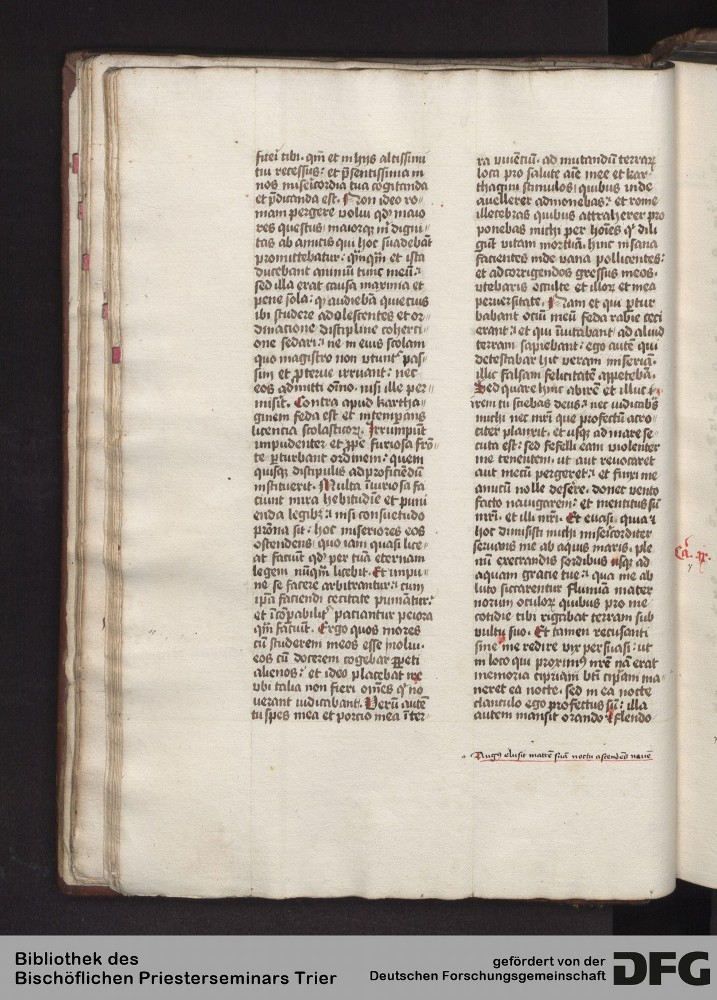 fitei tibi. qm̄ et in hijs altissimi
tui recessus: et p̄sentissima in
nos misericordia tua cogitanda
et p̄dicanda est. Non ideo ro-
mam pergere volui qd' maio
res questus maiorqȝ m̄ digni-
tas ab amicis qui hoc suadebāt
promittebatur: qm̄qm̄ et ista
ducebant animū tunc meū:
sed illa erat causa maxima et
pene sola: qȝ audiebā quietius
ibi studere adolescentes et or-
dinacione discipline coherci-
one sedari: ne in eius scolam
quo magistro non vtunt' pas-
sim et p̱terue irruant: nec
eos admitti oīno. nisi ille per-
misit. Contra apud kartha-
ginem feda est et intemperans
licencia scolasticoꝝ. Irrumpūt
impudenter et ꝓpe furiosa frō-
te p̱turbant ordinem: quem
quisqȝ discipulis ad proficiendū
instituerit. Multa iniuriosa fa
ciunt mira hebitudīe et puni
enda legibȝ: nisi consuetudo
prōna sit: hoc miseriores eos
ostendens: quo iam quasi lice-
at faciūt qd' per tuā eternam
legem nūqm̄ licebit. Et impu-
ne se facere arbitrantur: cum
ip̄a faciendi cecitate puniātur:
et īcōpabilit' paciantur peiora
qm̄ faciūt. Ergo quos mores
cū studerem meos esse nolui.
eos cū docerem cogebar ꝑpeti
alienos: et ideo placebat ire
vbi talia non fieri om̄es qȝ no
uerant iudicabant. Verū autē
tu spes mea et portio mea ī ter-
ra viuēciū. ad mutandū terraꝝ
loca pro salute aīe mee et kar-
thagini stimulos quibus inde
auellerer admonebas: et rome
illecebras quibus attraherer pro
ponebas michi per hoīes qȝ dili
gūt vitam mortuā. hinc insana
facientes inde vana pollicentes:
et ad corrigendos gressus meos.
vtebaris occulte et illoꝝ et mea
peruersitate. Nam et qui p̱tur
babant ociū meū feda rabie ceci
erant: et qui īuitabant ad aliud
terram sapiebant: ego autē qui
detestabar hic veram miseriā.
illic falsam felicitatē appetebā.
Sed quare hinc abirē et illuc
irem tu sciebas deus: nec iudicabas
michi nec mr̄i que profectū atro-
citer planxit. et vsqȝ ad mare se-
cuta est: sed fefelli eam violenter
me tenentem. ut aut reuocaret
aut mecū pergeret: et finxi me
amicū nolle desere. donec vento
facto nauigarem: et mentitus sū
mr̄i. et illi mr̄i. Et euasi. quia
hoc dimisisti michi misericorditer
seruans me ab aquis maris. ple
nū execrandis sordibus vsqȝ ad
aquam gracie tue: qua me ab
luto siccarentur flumina mater
norum oculoꝝ quibus pro me
cotidie tibi rigabat terram sub
vultu suo. Et tamen recusanti
sine me redire vix persuasi: ut
in loco qui proximȝ nr̄e naui erat
memoria cipriani bt̄i cip̄am ma-
neret ea nocte. sed in ea nocte
clanculo ego profectus sū: illa
autem mansit orando flendo
Ca. xv.
Augȝ elusit matrē suā noctu ascendens nauē
Bibliothek des
Bischöflichen Priesterseminars Trier
gefördert von der
Deutschen Forschungsgemeinschaft
DFG